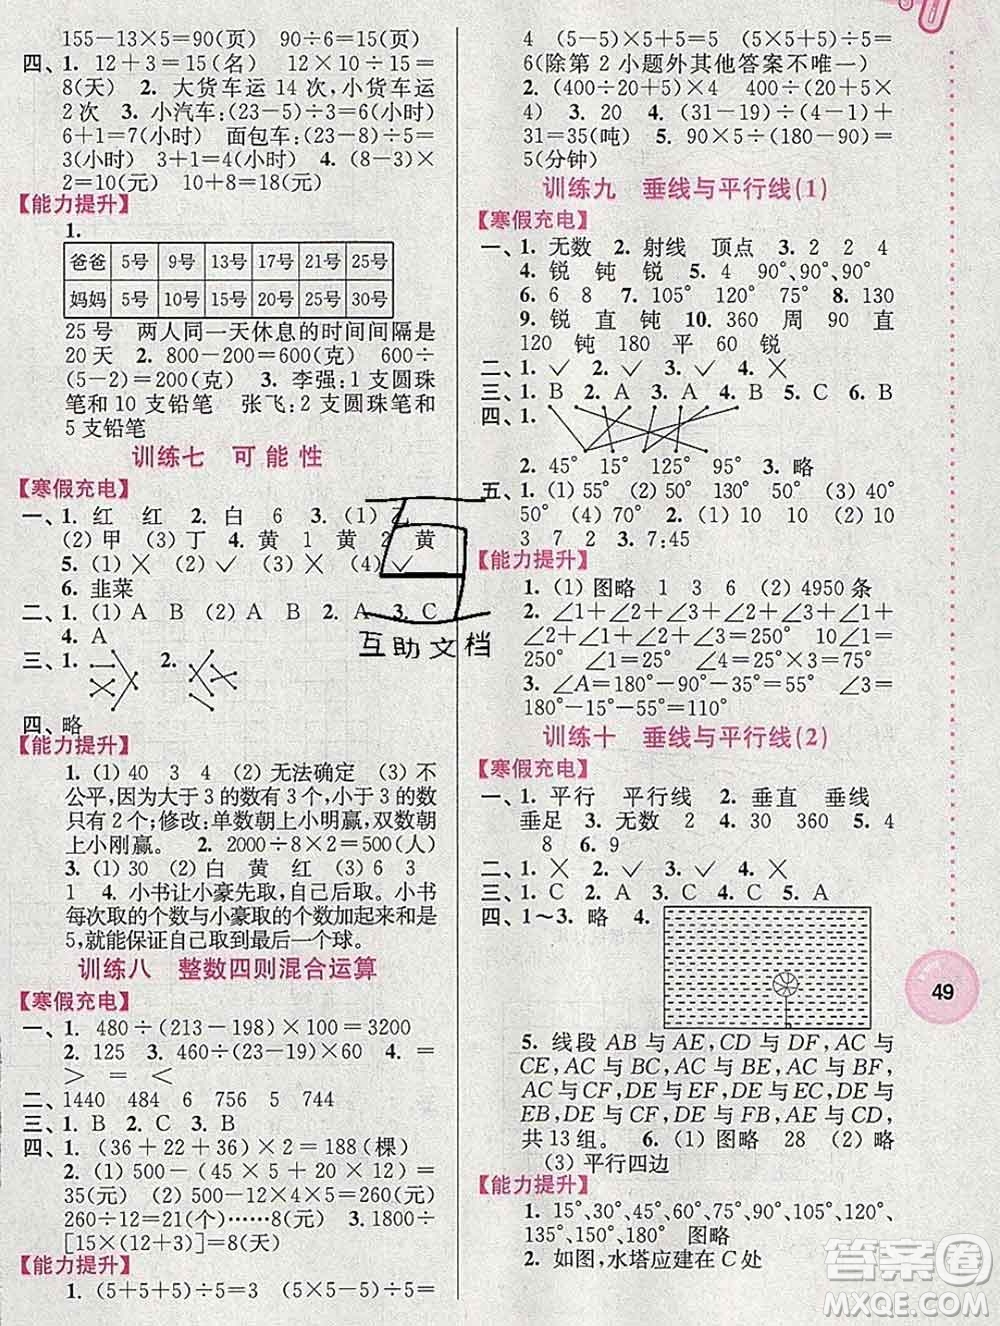 155-13×5=90(页)　90÷6=15(页)
四、1. 12+3=15(名)　12×10÷15=
8(天)　2. 大货车运 14 次,小货车运
2 次　3. 小汽车:(23-5)÷3=6(小时)
6+1=7(小时)　面包车:(23-8)÷5=
3(小时)　3+1=4(小时)　4. (8-3)×
2=10(元)　10+8=18(元)
【能力提升】
1.
爸爸 5号 9号 13号 17号 21号 25号
妈妈 5号 10号 15号 20号 25号 30号
25 号　两人同一天休息的时间间隔是
20 天　2. 800-200=600(克)　600÷
(5-2)=200(克)　3. 李强:1 支圆珠
笔和 10 支铅笔　张飞:2 支圆珠笔和
5 支铅笔
训练七　可能性
【寒假充电】
一、1. 红　红　2. 白　6　3. (1) 乙
(2) 甲　(3) 丁　4. 黄　1　黄　2　黄
5. (1) ×　(2) ✓　(3) ×　(4) ✓
6. 韭菜
二、1. (1) A　B　(2) A　B　2. A　3. C
4. A
三、1.　2.
四、略
【能力提升】
1. (1) 40　3　4　(2) 无法确定　(3) 不
公平,因为大于 3 的数有 3 个,小于 3 的数
只有 2 个;修改:单数朝上小明赢,双数朝
上小刚赢。　2. 2000÷8×2=500(人)
3. (1) 40　(2) 白　黄　红　(3) 6　3
1　4. 小书让小豪先取,自己后取。小书
每次取的个数与小豪取的个数加起来和是
5,就能保证自己取到最后一个球。
训练八　整数四则混合运算
【寒假充电】
一、1. 480÷(213-198)×100=3200
2. 125　3. 460÷(23-19)×60　4. =
>　=　<　=
二、1440　484　6　756　5　744
三、1. B　2. C　3. B
四、1. (36+22+36)×2=188(棵)
2. (1) 500-(45×5+20×12)=
35(元)　(2) 500-12×4×5=260(元)
260÷12=21(个)……8(元)　3. 1800÷
[15×(12+3)]=8(天)
【能力提升】
1. (5+5+5)÷5=3　(5+5+5+5)÷5=
4　(5-5)×5+5=5　(5×5+5)÷5=
6(除第 2 小题外其他答案不唯一)
2. (400÷20+5)×4　400÷(20+5×
4)　3. 20　4. (31-19)÷(4-1)+
31=35(吨)　5. 90×5÷(180-90)=
5(分钟)
训练九　垂线与平行线(1)
【寒假充电】
一、1. 无数　2. 射线　顶点　3. 2　2　4
4. 锐　钝　锐　5. 4　90°、90°、90°
6. 6　8　7. 105°　120°　75°　8. 130
9. 锐　直　钝　10. 360　周　90　直
120　钝　180　平　60　锐
二、1. ✓　2. ✓　3. ✓　4. ×
三、1. B　2. A　3. A　4. B　5. C　6. B
四、1.
2. 45°　15°　125°　95°　3. 略
五、1. (1) 55°　(2) 50°　(3) 40°　50°
50°　(4) 70°　(5) 100°　(6) 100°　2. 0
3　7　2　3. 7:45
【能力提升】
1. (1) 图略　6　10　(2) 4950 条
2. ∠1+∠2+∠3+∠2+∠3+∠1+
∠2+∠3+∠1+∠2+∠3+∠1+
250=250+250+250　10∠1=
250-∠1=25°　∠3=25°×3=75°
3. ∠A=180°-15°-55°=110°　∠1=
180°-15°-55°=110°
训练十　垂线与平行线(2)
【寒假充电】
一、1. 平行　平行线　2. 垂直　垂线
垂足　3. 无数　2　4. 30　360　5. 4
8　6. 9
二、1. ×　2. ×　3. ✓　4. ×
三、1. C　2. A　3. C　4. A　5. A
四、1～3. 略　4.
5. 线段 AB 与 AE,CD 与 DF,AC 与
CE,AC 与 AE,AC 与 AB,AC 与 BF,
AC 与 CF,DE 与 EF,DE 与 AE,DE 与
EB,DE 与 CF,DE 与 FB,AE 与 CD,
共 13 组。　6. (1) 图略　28　(2) 略
(3) 平行四边
【能力提升】
1. 15°、30°、45°、60°、75°、90°、105°、120°、
135°、150°、180°　图略
2. 如图,水塔应建在 C 处
49
互助文档
答案圈
MXQE.COM